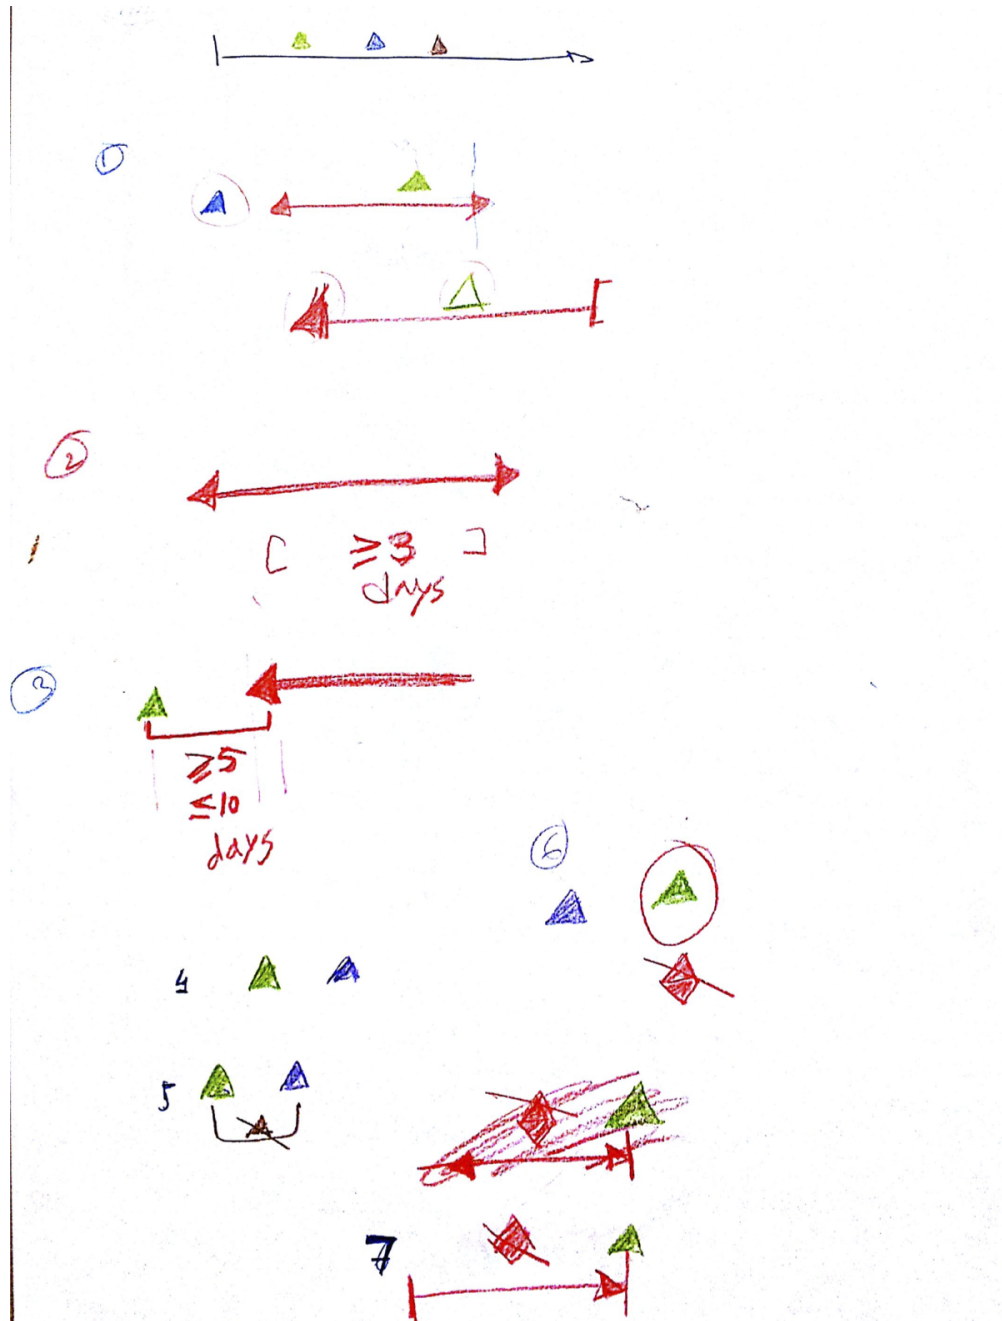 1
2
[ ≥3 ]
days
3
≥5
≤10
days
6
4
5
7